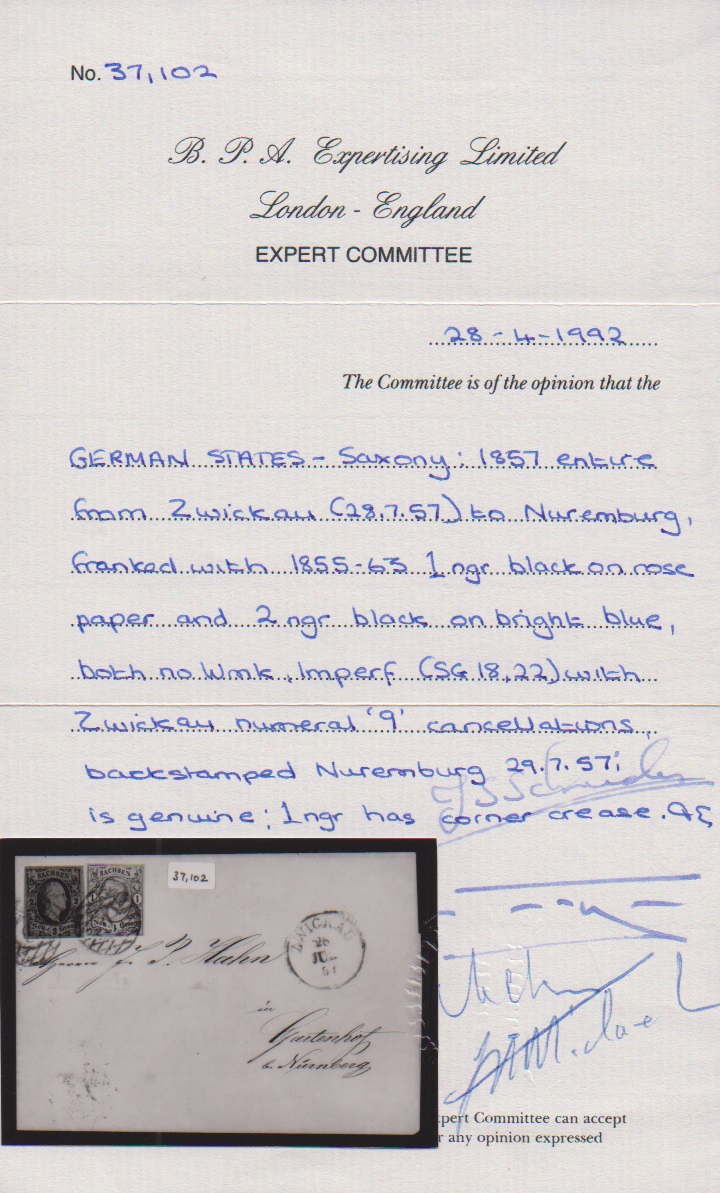 No. 37,102
B. P. A. Expertising Limited
London - England
EXPERT COMMITTEE
28-4-1992
The Committee is of the opinion that the
GERMAN STATES - Saxony: 1857 entire
from Zwickau (28.7.57) to Nuremburg,
franked with 1855-63 1ngr black on rose
paper and 2ngr black on bright blue,
both no Wmk, Imperf (SG 18,22) with
Zwickau numeral '9' cancellations,
backstamped Nuremburg 29.7.57;
is genuine; 1ngr has corner crease.
SACHSEN
2 2
SACHSEN
1
37,102
ZWICKAU
28
JUL
Herrn J. Hahn
in
Gartenhof
b. Nürnberg
xpert Committee can accept
r any opinion expressed